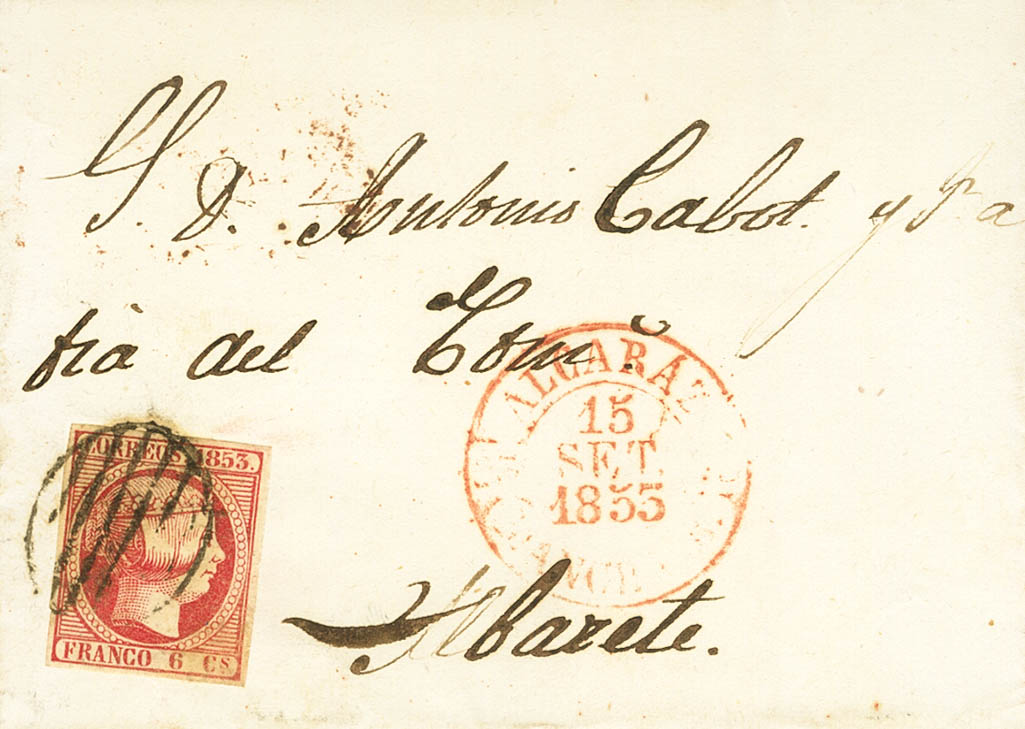 S. D. Antonio Cabot. y
del
CORREOS 1853.
FRANCO 6 CS
ALCARAZ
15
SET.
1853
Abacete.